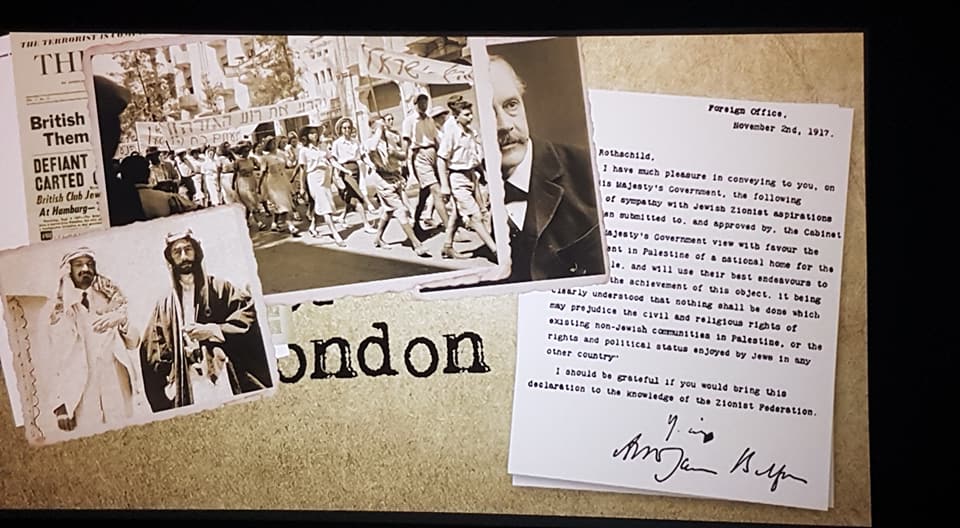 THE TERRORIST IS
TH
British
Them
DEFIANT
CARTED
British Club Jew
At Hamburg—
ondon
Foreign Office,
November 2nd, 1917.
Rothschild,
I have much pleasure in conveying to you, on
is Majesty's Government, the following
of sympathy with Jewish Zionist aspirations
en submitted to, and approved by, the Cabinet
ajesty's Government view with favour the
ent in Palestine of a national home for the
le, and will use their best endeavours to
the achievement of this object, it being
clearly understood that nothing shall be done which
may prejudice the civil and religious rights of
existing non-Jewish communities in Palestine, or the
rights and political status enjoyed by Jews in any
other country"
I should be grateful if you would bring this
declaration to the knowledge of the Zionist Federation.